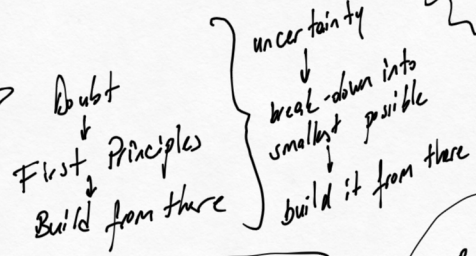 Doubt
First Principles
Build from there
uncertainty
break-down into
smallest possible
build it from there